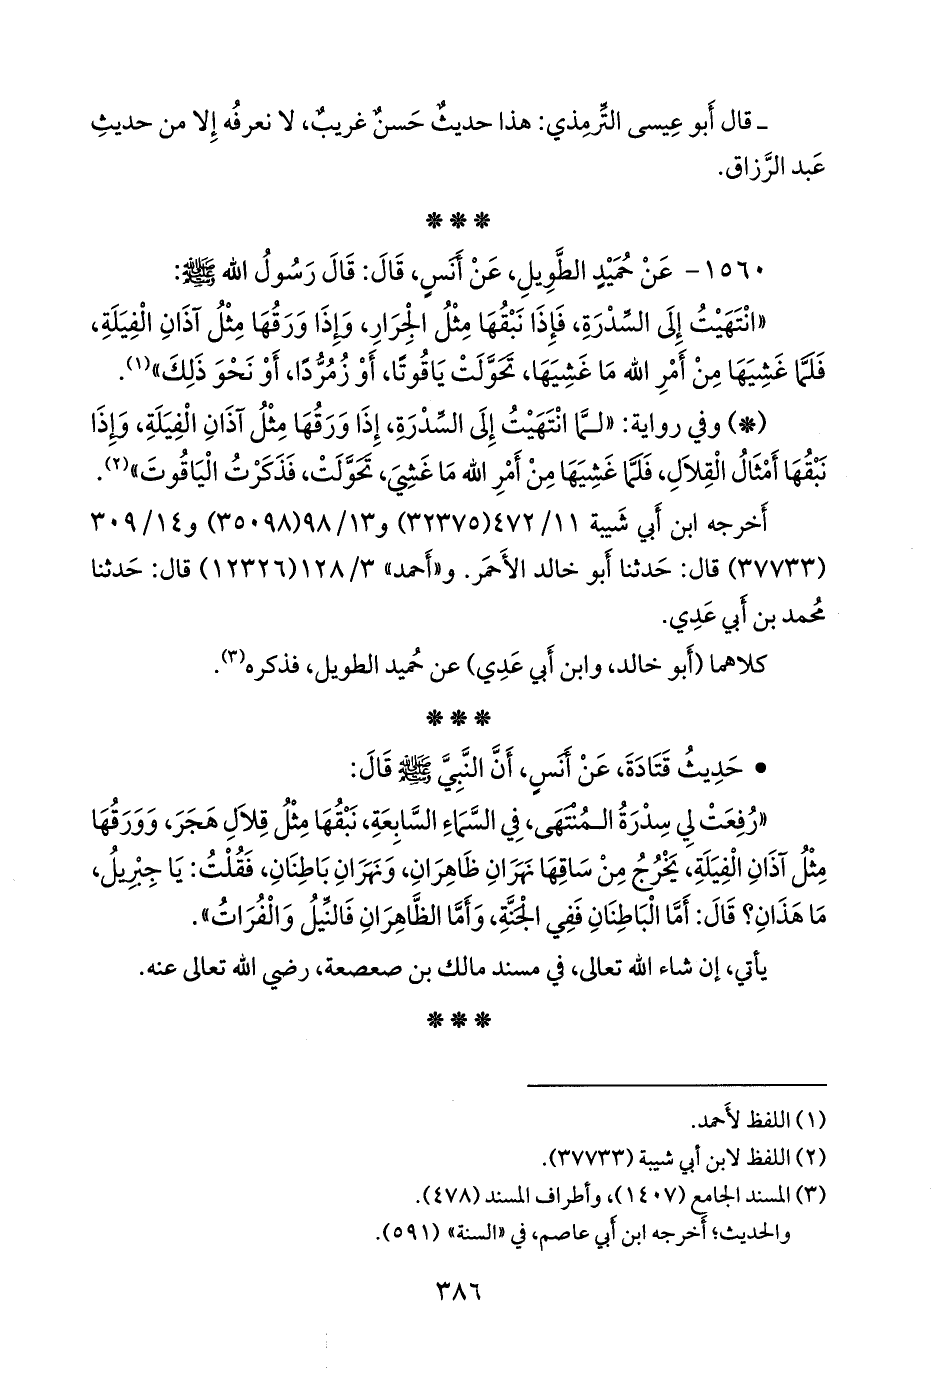 ـ قال أَبو عِيسى التِّرمِذي: هذا حديثٌ حَسنٌ غريبٌ، لا نعرفُه إِلا من حديثِ
عَبد الرَّزاق.
* * *
١٥٦٠- عَنْ حُمَيْدٍ الطَّوِيلِ، عَنْ أَنَسٍ، قَالَ: قَالَ رَسُولُ الله ﷺ:
«انْتَهَيْتُ إِلَى السِّدْرَةِ، فَإِذَا نَبْقُهَا مِثْلُ الْجِرَارِ، وَإِذَا وَرَقُهَا مِثْلُ آذَانِ الْفِيَلَةِ،
فَلَمَّا غَشِيَهَا مِنْ أَمْرِ الله مَا غَشِيَهَا، تَحَوَّلَتْ يَاقُوتًا، أَوْ زُمُرُّدًا، أَوْ نَحْوَ ذَلِكَ»(١).
(*) وفي رواية: «لـمَّا انْتَهَيْتُ إِلَى السِّدْرَةِ، إِذَا وَرَقُهَا مِثْلُ آذَانِ الْفِيَلَةِ، وَإِذَا
نَبْقُهَا أَمْثَالُ الْقِلاَلِ، فَلَمَّا غَشِيَهَا مِنْ أَمْرِ الله مَا غَشِيَ، تَحَوَّلَتْ، فَذَكَرْتُ الْيَاقُوتَ»(٢).
أَخرجه ابن أَبي شَيبة ١١/ ٤٧٢(٣٢٣٧٥) و١٣/ ٩٨(٣٥٠٩٨) و١٤/ ٣٠٩
(٣٧٧٣٣) قال: حَدثنا أَبو خالد الأَحمَر. و«أَحمد» ٣/ ١٢٨(١٢٣٢٦) قال: حَدثنا
مُحمد بن أَبي عَدِي.
كلاهما (أَبو خالد، وابن أَبي عَدِي) عن حُميد الطويل، فذكره(٣).
* * *
• حَدِيثُ قَتَادَةَ، عَنْ أَنَسٍ، أَنَّ النَّبِيَّ ﷺ قَالَ:
«رُفِعَتْ لِي سِدْرَةُ الـمُنْتَهَى، فِي السَّمَاءِ السَّابِعَةِ، نَبْقُهَا مِثْلُ قِلاَلِ هَجَرَ، وَوَرَقُهَا
مِثْلُ آذَانِ الْفِيَلَةِ، يَخْرُجُ مِنْ سَاقِهَا نَهَرَانِ ظَاهِرَانِ، وَنَهَرَانِ بَاطِنَانِ، فَقُلْتُ: يَا جِبْرِيلُ،
مَا هَذَانِ؟ قَالَ: أَمَّا الْبَاطِنَانِ فَفِي الْجَنَّةِ، وَأَمَّا الظَّاهِرَانِ فَالنِّيلُ وَالْفُرَاتُ».
يأتي، إن شاء الله تعالى، في مسند مالك بن صعصعة، رضي الله تعالى عنه.
* * *
(١) اللفظ لأَحمد.
(٢) اللفظ لابن أبي شيبة (٣٧٧٣٣).
(٣) المسند الجامع (١٤٠٧)، وأطراف المسند (٤٧٨).
والحديث؛ أَخرجه ابن أَبي عاصم، في «السنة» (٥٩١).
٣٨٦